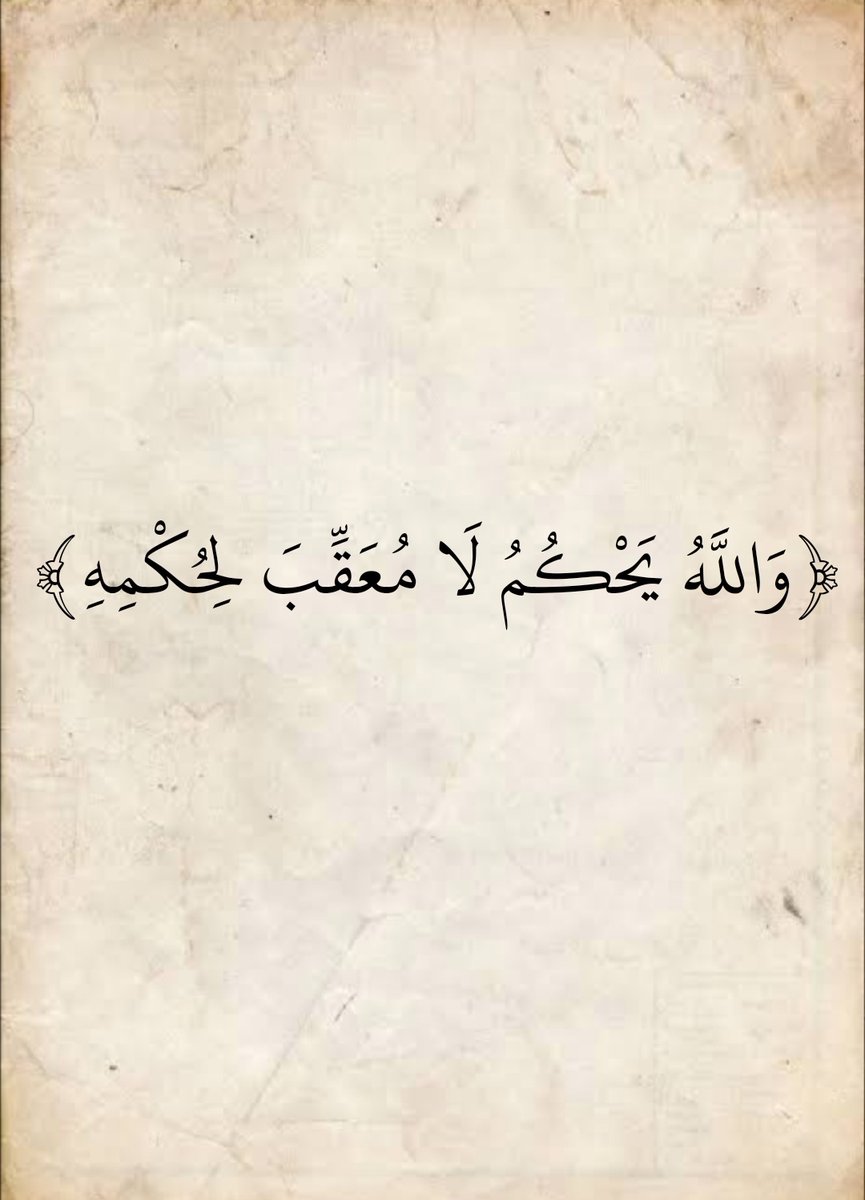 ﴿وَاللَّهُ يَحْكُمُ لَا مُعَقِّبَ لِحُكْمِهِ﴾